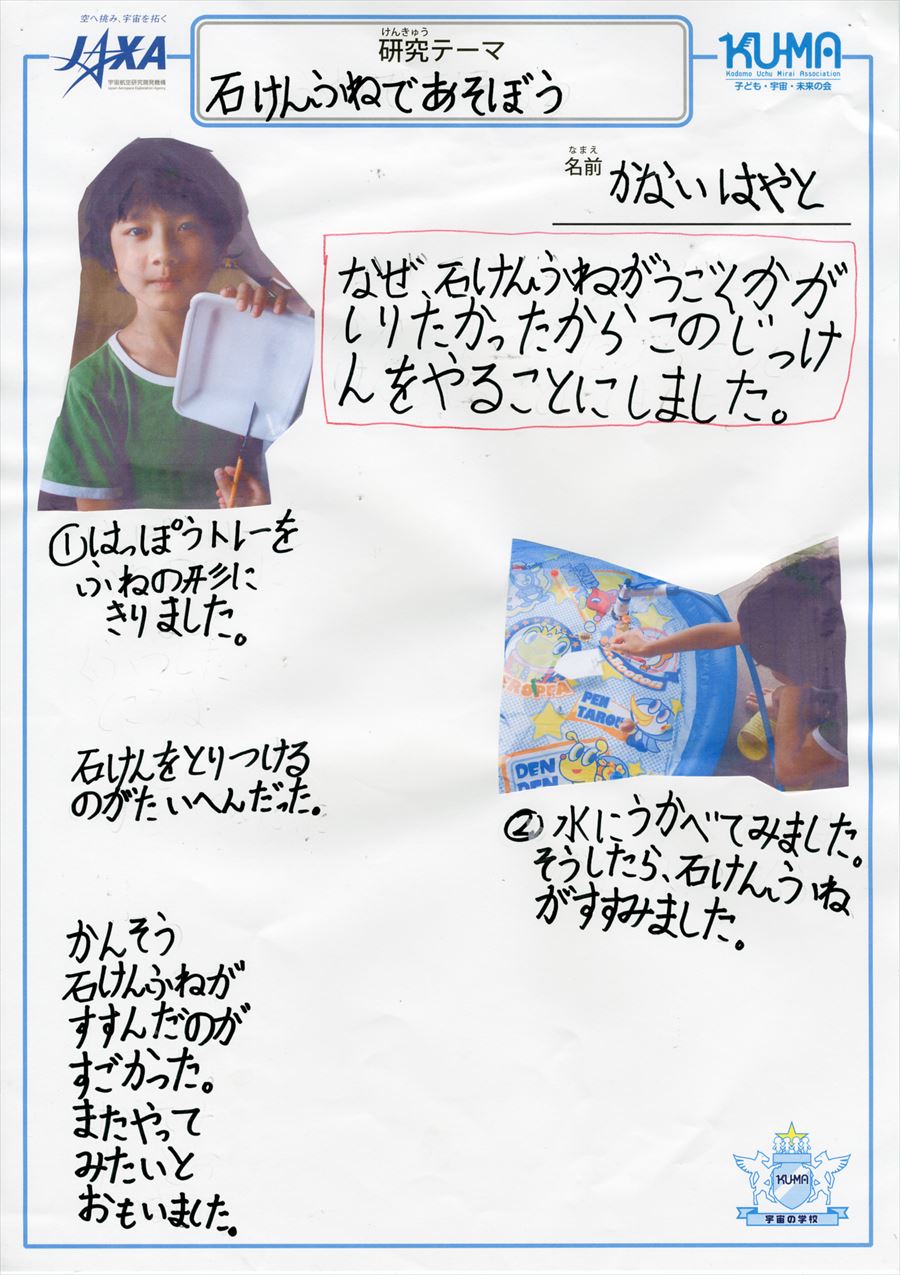 空へ挑み、宇宙を拓く
JAXA
宇宙航空研究開発機構
Japan Aerospace Exploration Agency
けんきゅう
研究テーマ
石けんふねであそぼう
KU-MA
Kodomo Uchu Mirai Association
子ども・宇宙・未来の会
なまえ
名前 かないはやと
なぜ、石けんふねがうごくかが
しりたかったからこのじっけ
んをやることにしました。
①はっぽうトレーを
ふねの形に
きりました。
石けんをとりつける
のがたいへんだった。
KEROPPA
PEN
TARO
DEN
DEN
②水にうかべてみました。
そうしたら、石けんふね
がすすみました。
かんそう
石けんふねが
すすんだのが
すごかった。
またやって
みたいと
おもいました。
KU-MA
宇宙の学校